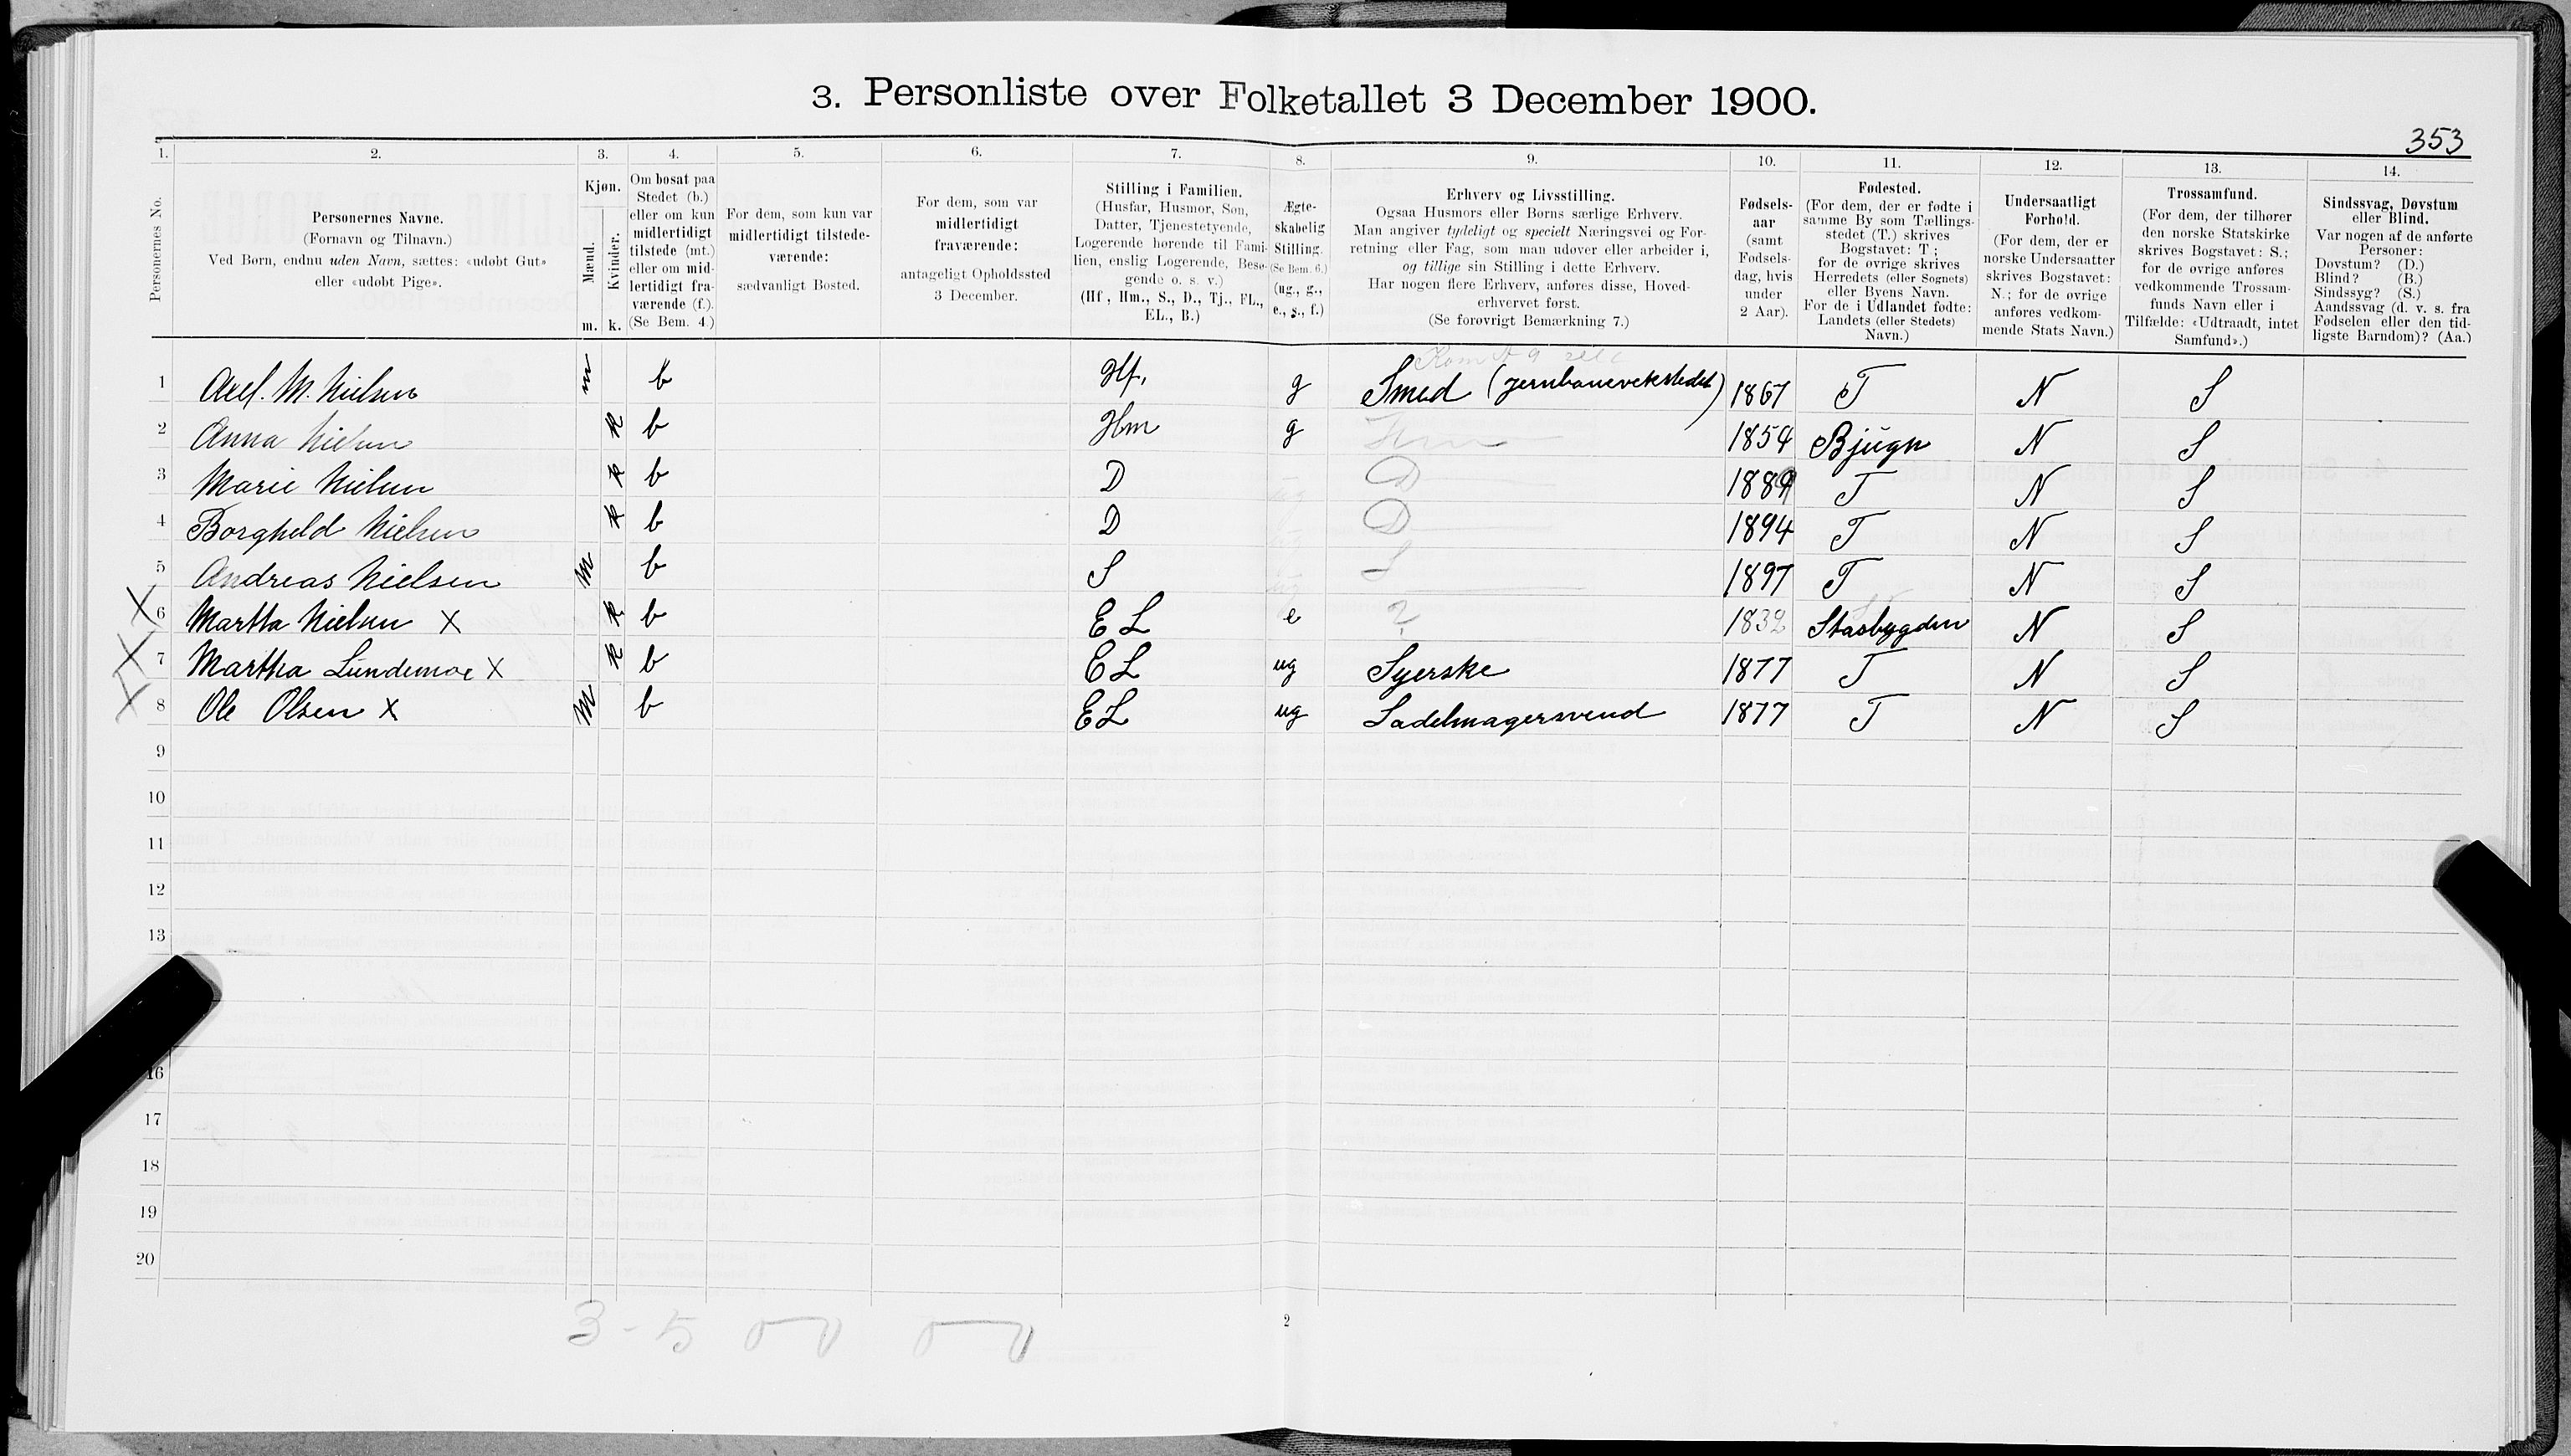 3. Personliste over Folketallet 3 December 1900.
353
1. 2. 3. 4. 5. 6. 7. 8. 9. 10. 11. 12. 13. 14.
Personernes No.
Personernes Navne.
(Fornavn og Tilnavn.)
Ved Børn, endnu uden Navn, sættes: «udøbt Gut»
eller «udøbt Pige».
Kjøn.
Mænd.
Kvinder.
m. k.
Om bosat paa
Stedet (b.)
eller om kun
midlertidigt
tilstede (mt.)
eller om mid-
lertidigt fra-
værende (f.).
(Se Bem. 4.)
For dem, som kun var
midlertidigt tilstede-
værende:
sædvanligt Bosted.
For dem, som var
midlertidigt
fraværende:
antageligt Opholdssted
3 December.
Stilling i Familien.
(Husfar, Husmor, Søn,
Datter, Tjenestetyende,
Logerende hørende til Fami-
lien, enslig Logerende, Besø-
gende o. s. v.)
(Hf., Hm., S., D., Tj., FL.,
EL., B.)
Ægte-
skabelig
Stilling.
(Se Bem. 6.)
(ug., g.,
e., s., f.)
Erhverv og Livsstilling.
Ogsaa Husmors eller Børns særlige Erhverv.
Man angiver tydeligt og specielt Næringsvei og For-
retning eller Fag, som man udøver eller arbeider i,
og tillige sin Stilling i dette Erhverv.
Har nogen flere Erhverv, anføres disse, Hoved-
erhvervet først.
(Se forøvrigt Bemærkning 7.)
Fødsels-
aar
(samt
Fødsels-
dag, hvis
under
2 Aar).
Fødested.
(For dem, der er fødte i
samme By som Tællings-
stedet (T.) skrives
Bogstavet: T;
for de øvrige skrives
Herredets (eller Sognets)
eller Byens Navn.
For de i Udlandet fødte:
Landets (eller Stedets)
Navn.)
Undersaatligt
Forhold.
(For dem, der er
norske Undersaatter
skrives Bogstavet:
N.; for de øvrige
anføres vedkom-
mende Stats Navn.)
Trossamfund.
(For dem, der tilhører
den norske Statskirke
skrives Bogstavet: S.;
for de øvrige anføres
vedkommende Trossam-
funds Navn eller i
Tilfælde: «Udtraadt, intet
Samfund».)
Sindssvag, Døvstum
eller Blind.
Var nogen af de anførte
Personer:
Døvstum? (D.)
Blind? (B.)
Sindssyg? (S.)
Aandssvag (d. v. s. fra
Fødselen eller den tid-
ligste Barndom)? (Aa.)
1 Axel. M. Nielsen m b Hf. g Smed (Jernbaneverkstedet) 1867 T N S
2 Anna Nielsen k b Hm g Hm 1854 Bjugn N S
3 Marie Nielsen k b D ug D 1889 T N S
4 Borghild Nielsen k b D ug D 1894 T N S
5 Andreas Nielsen m b S ug S 1897 T N S
X 6 Martha Nielsen X k b E L e ? 1832 Stadsbygden N S
X 7 Martha Lundemoe X k b E L ug Syerske 1877 T N S
X 8 Ole Olsen X m b E L ug Sadelmagersvend 1877 T N S
9
10
11
12
13
16
17
18
19
20
3 - 5
2